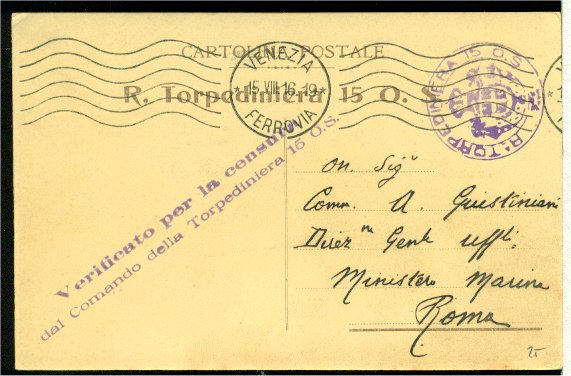 CARTOLINA POSTALE
VENEZIA
*15.VIII.16.19*
FERROVIA
R. Torpediniera 15 O. S.
R. TORPEDINIERA 15 O.S.
Verificato per la censura
dal Comando della Torpediniera 15 O.S.
On. Sigʳ
Comm. A. Giustiniani
Direzⁿᵉ Genle Uffli.
Ministero Marina
Roma
25